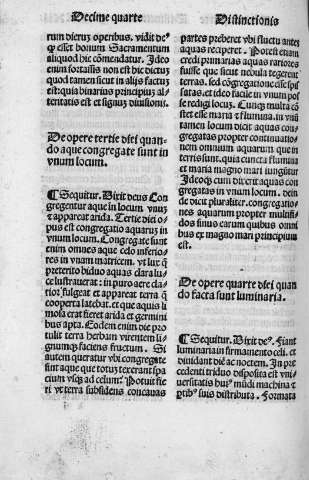 Decime quarte
Distinctionis
rum dierũ operibus, vidit deꝰ
ꝙ esset bonum Sacramentum
aliquod hic cõmendatur. Ideo
enim fortassis non est hic dictũ
quod tamen sicut in alijs factũ
est: quia binarius principiũ al-
teritatis est et signuȝ diuisionis.
De opere tertie diei quan-
do aque congregate sunt in
vnum locum.
¶ Sequitur. Dixit deus Con
gregentur aque in locum vnuȝ
et appareat arida. Tertie diei o
pus est congregatio aquarũ in
vnum locum. Congregate sunt
enim omnes aque celo inferio-
res in vnam matricem. vt lux q̃
preterito biduo aquas clara lu-
ce lustrauerat: in puro aere cla-
rior fulgeat et appareat terra q̃
cooperta latebat. et que aquis li
mosa erat fieret arida et germini
bus apta. Eodem enim die pro
tulit terra herbam virentem li-
gnumqȝ faciens fructum. Si
autem queratur vbi congregate
sint aque que totuȝ texerant spa
cium vsqȝ ad celum: Potuit fie
ri vt terra subsidens concauas
partes preberet vbi fluctuãtes
aquas reciperet. Potest etiam
credi primarias aquas rariores
fuisse que sicut nebula tegerent
terras. sed cõgregatione esse spis
satas. et ideo facile in vnum pos
se redigi locuȝ. Cunqȝ multa cõ
stet esse maria et flumina. in vnũ
tamen locum dicit aquas con-
gregatas propter continuatio
nem omnium aquarum que in
terris sunt. quia cuncta flumina
et maria magno mari iungũtur
Ideoqȝ cum dixerit aquas con
gregatas in vnum locum. dein
de dicit pluraliter. congregatio-
nes aquarum propter multifi-
dos sinus earum quibus omni
bus ex magno mari principium
est.
De opere quarte diei quan
do facta sunt luminaria.
¶ Sequitur. Dixit deꝰ. Fiant
luminaria in firmamento celi. et
diuidant diẽ ac noctem. In pre
cedenti triduo disposita est vni-
uersitatis huiꝰ mũdi machina et
ꝑtibꝰ suis distributa. Formata